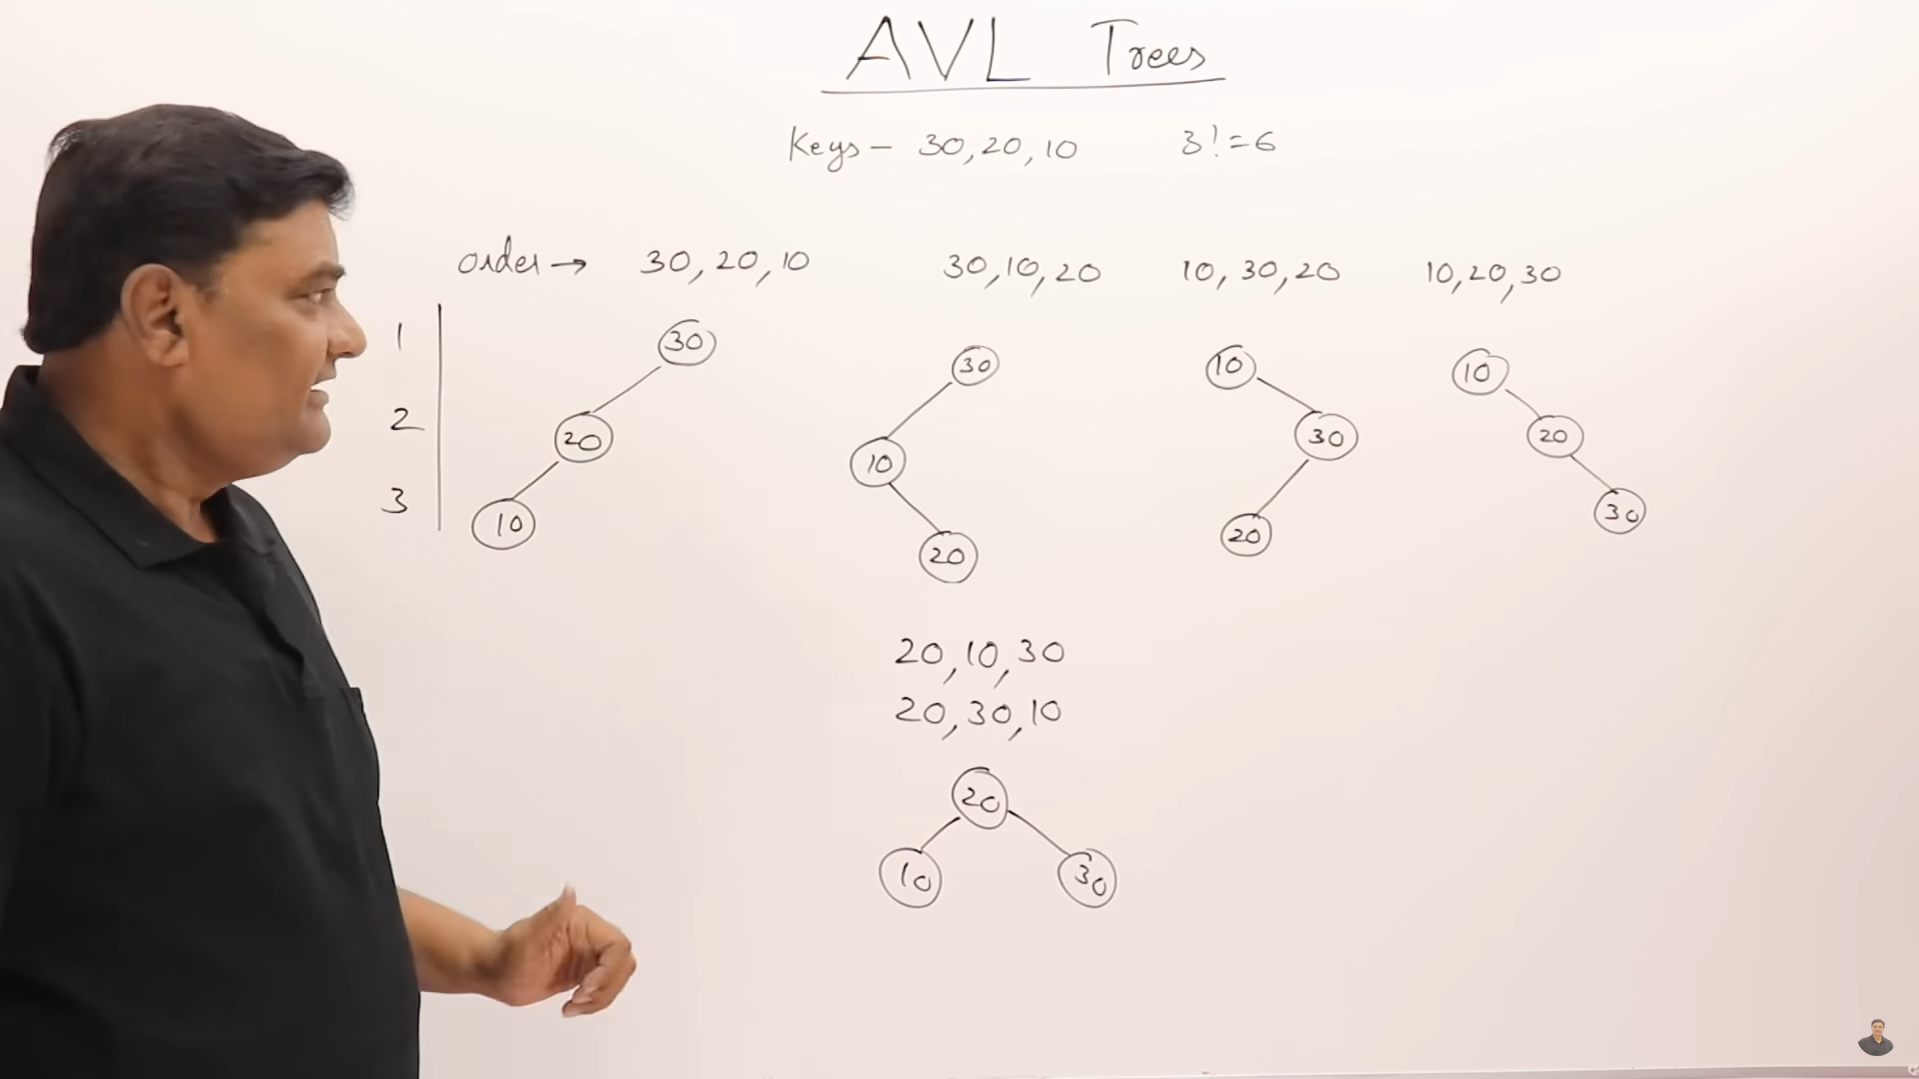 AVL Trees
Keys – 30,20,10 3!=6
order → 30,20,10 30,10,20 10,30,20 10,20,30
1 30 30 10 10
2 20 10 30 20
3 10 20 20 30
20,10,30
20,30,10
20
10 30